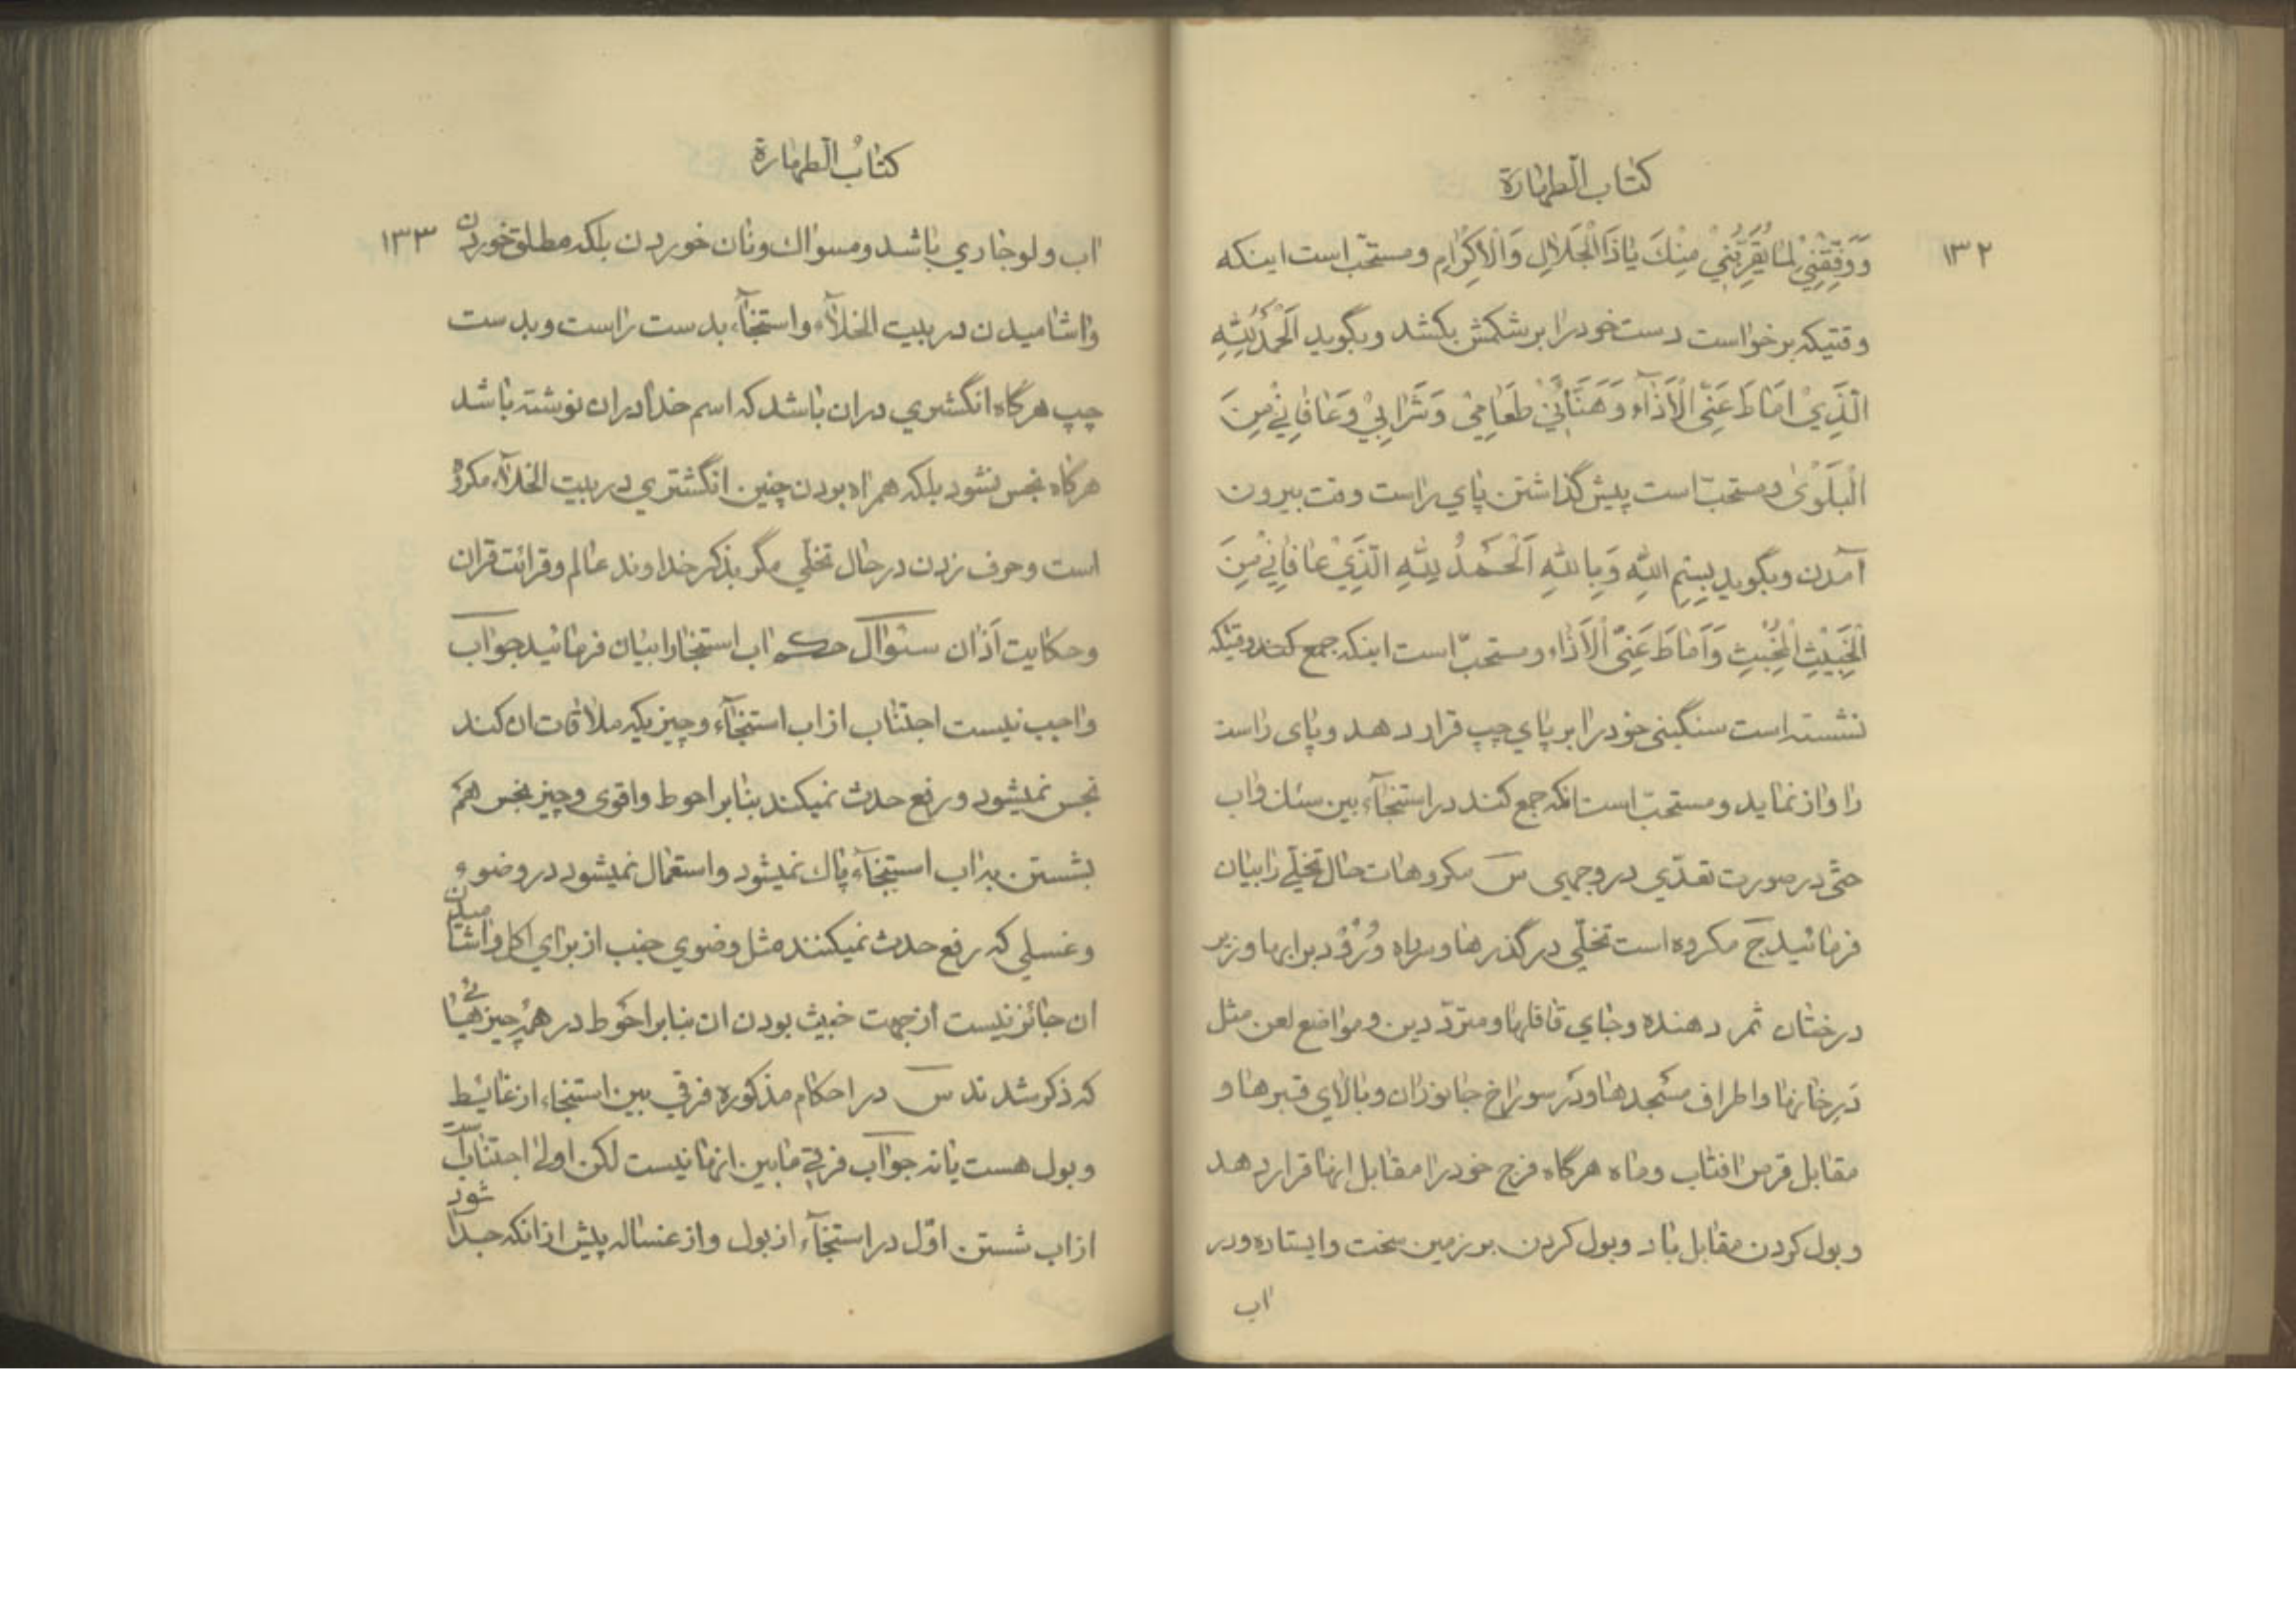 كتاب الطهارة
١٣٢
وَوَفِّقْنِيْ لِمٰا يُقَرِّبُنِيْ مِنْكَ يٰا ذَا الْجَلٰالِ وَالْاِكْرٰامِ ومستحبّ است اينكه
وقتيكه برخواست دست خود را بر شكمش بكشد وبگويد اَلْحَمْدُ لِلّٰهِ
الَّذِيْ اَمٰاطَ عَنِّى الْاَذٰآءَ وَهَنَّانِيْ طَعٰامِيْ وَشَرٰابِيْ وَعٰافٰانِيْ مِنَ
الْبَلْوٰى ومستحبّ است پيش گذاشتن پاي راست وقت بيرون
آمدن وبگويد بِسْمِ اللّٰهِ وَبِاللّٰهِ اَلْحَمْدُ لِلّٰهِ الَّذِيْ عٰافٰانِيْ مِنَ
الْخَبِيْثِ الْمُخْبِثِ وَاَمٰاطَ عَنِّى الْاَذٰاءَ ومستحبّ است اينكه جمع كند وقتيكه
نشسته است سنگينى خود را بر پاي چپ قرار دهد وپاى راست
را واز نمايد ومستحبّ است انكه جمع كند در استنجآء بين سنك واب
حتّى در صورت تعدّي در وجهى س مكروهات حال تخلّى را بيان
فرمائيد ج مكروه است تخلّي در گذرها وسر راه ورُوْد برابها وزير
درختان ثمر دهنده وجاي قافلها ومتردّدين ومواضع لعن مثل
دَرِ خانها واطراف مسجدها ودَر سوراخ جانوران وبالاي قبرها و
مقابل قرص افتاب وماه هرگاه فرج خود را مقابل انها قرار دهد
وبول كردن مقابل باد وبول كردن بر زمين سخت وايستاده ودر
اب
كتابُ الطهارة
١٣٣
اب ولو جاري باشد ومسواك ونان خوردن بلكه مطلق خوردن
واشاميدن در بيت الخلآء واستنجآء بدست راست وبدست
چپ هرگاه انگشتري دران باشد كه اسم خدا دران نوشته باشد
هرگاه نجس نشود بلكه همراه بودن چنين انگشتري در بيت الخلآء مكروه
است وحرف زدن در حال تخلّي مگر بذكر خداوند عالم وقرائت قران
وحكايت اَذان سئوال حكم اب استنجا را بيان فرمائيد جواب
واجب نيست اجتناب از اب استنجآء وچيزيكه ملاقات ان كند
نجس نميشود ورفع حدث نميكند بنابر احوط واقوى وچيز نجس هم
بشستن به اب استنجآء پاك نميشود واستعمال نميشود در وضوء
وغسلي كه رفع حدث نميكنند مثل وضوي جنب از براي اكل واشاميدن
ان جائز نيست از جهت خبيث بودن ان بنابر احوط در همه چيزهائى
كه ذكر شدند س در احكام مذكوره فرقي بين استنجاء از غايئط
وبول هست يا نه جواب فرقي مابين انها نيست لكن اولى اجتناب است
از اب شستن اوّل در استنجآء از بول واز غساله پيش از انكه جدا شود